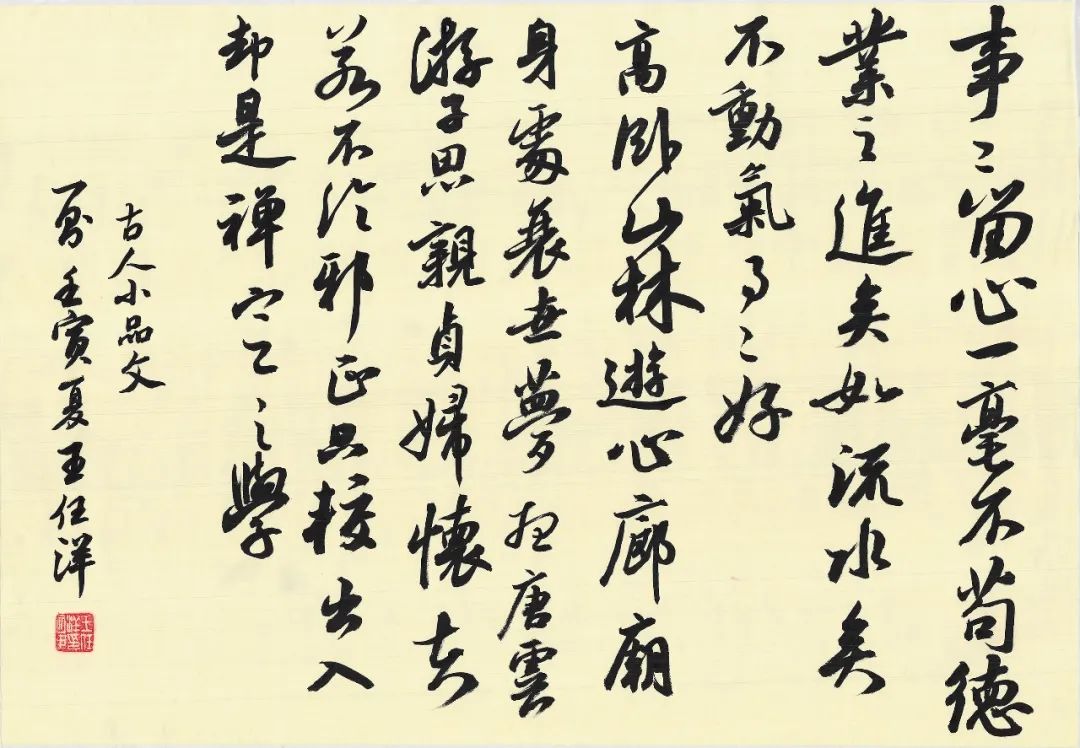 事〻留心一毫不苟德
業之進矣如流水矣
不動氣事〻好
高卧山林遊心廊廟
身處衰世夢想唐虞
游子思親貞婦懷夫
若不論邪正只校出入
却是禅定之學
古人小品文
壬寅夏王任洋